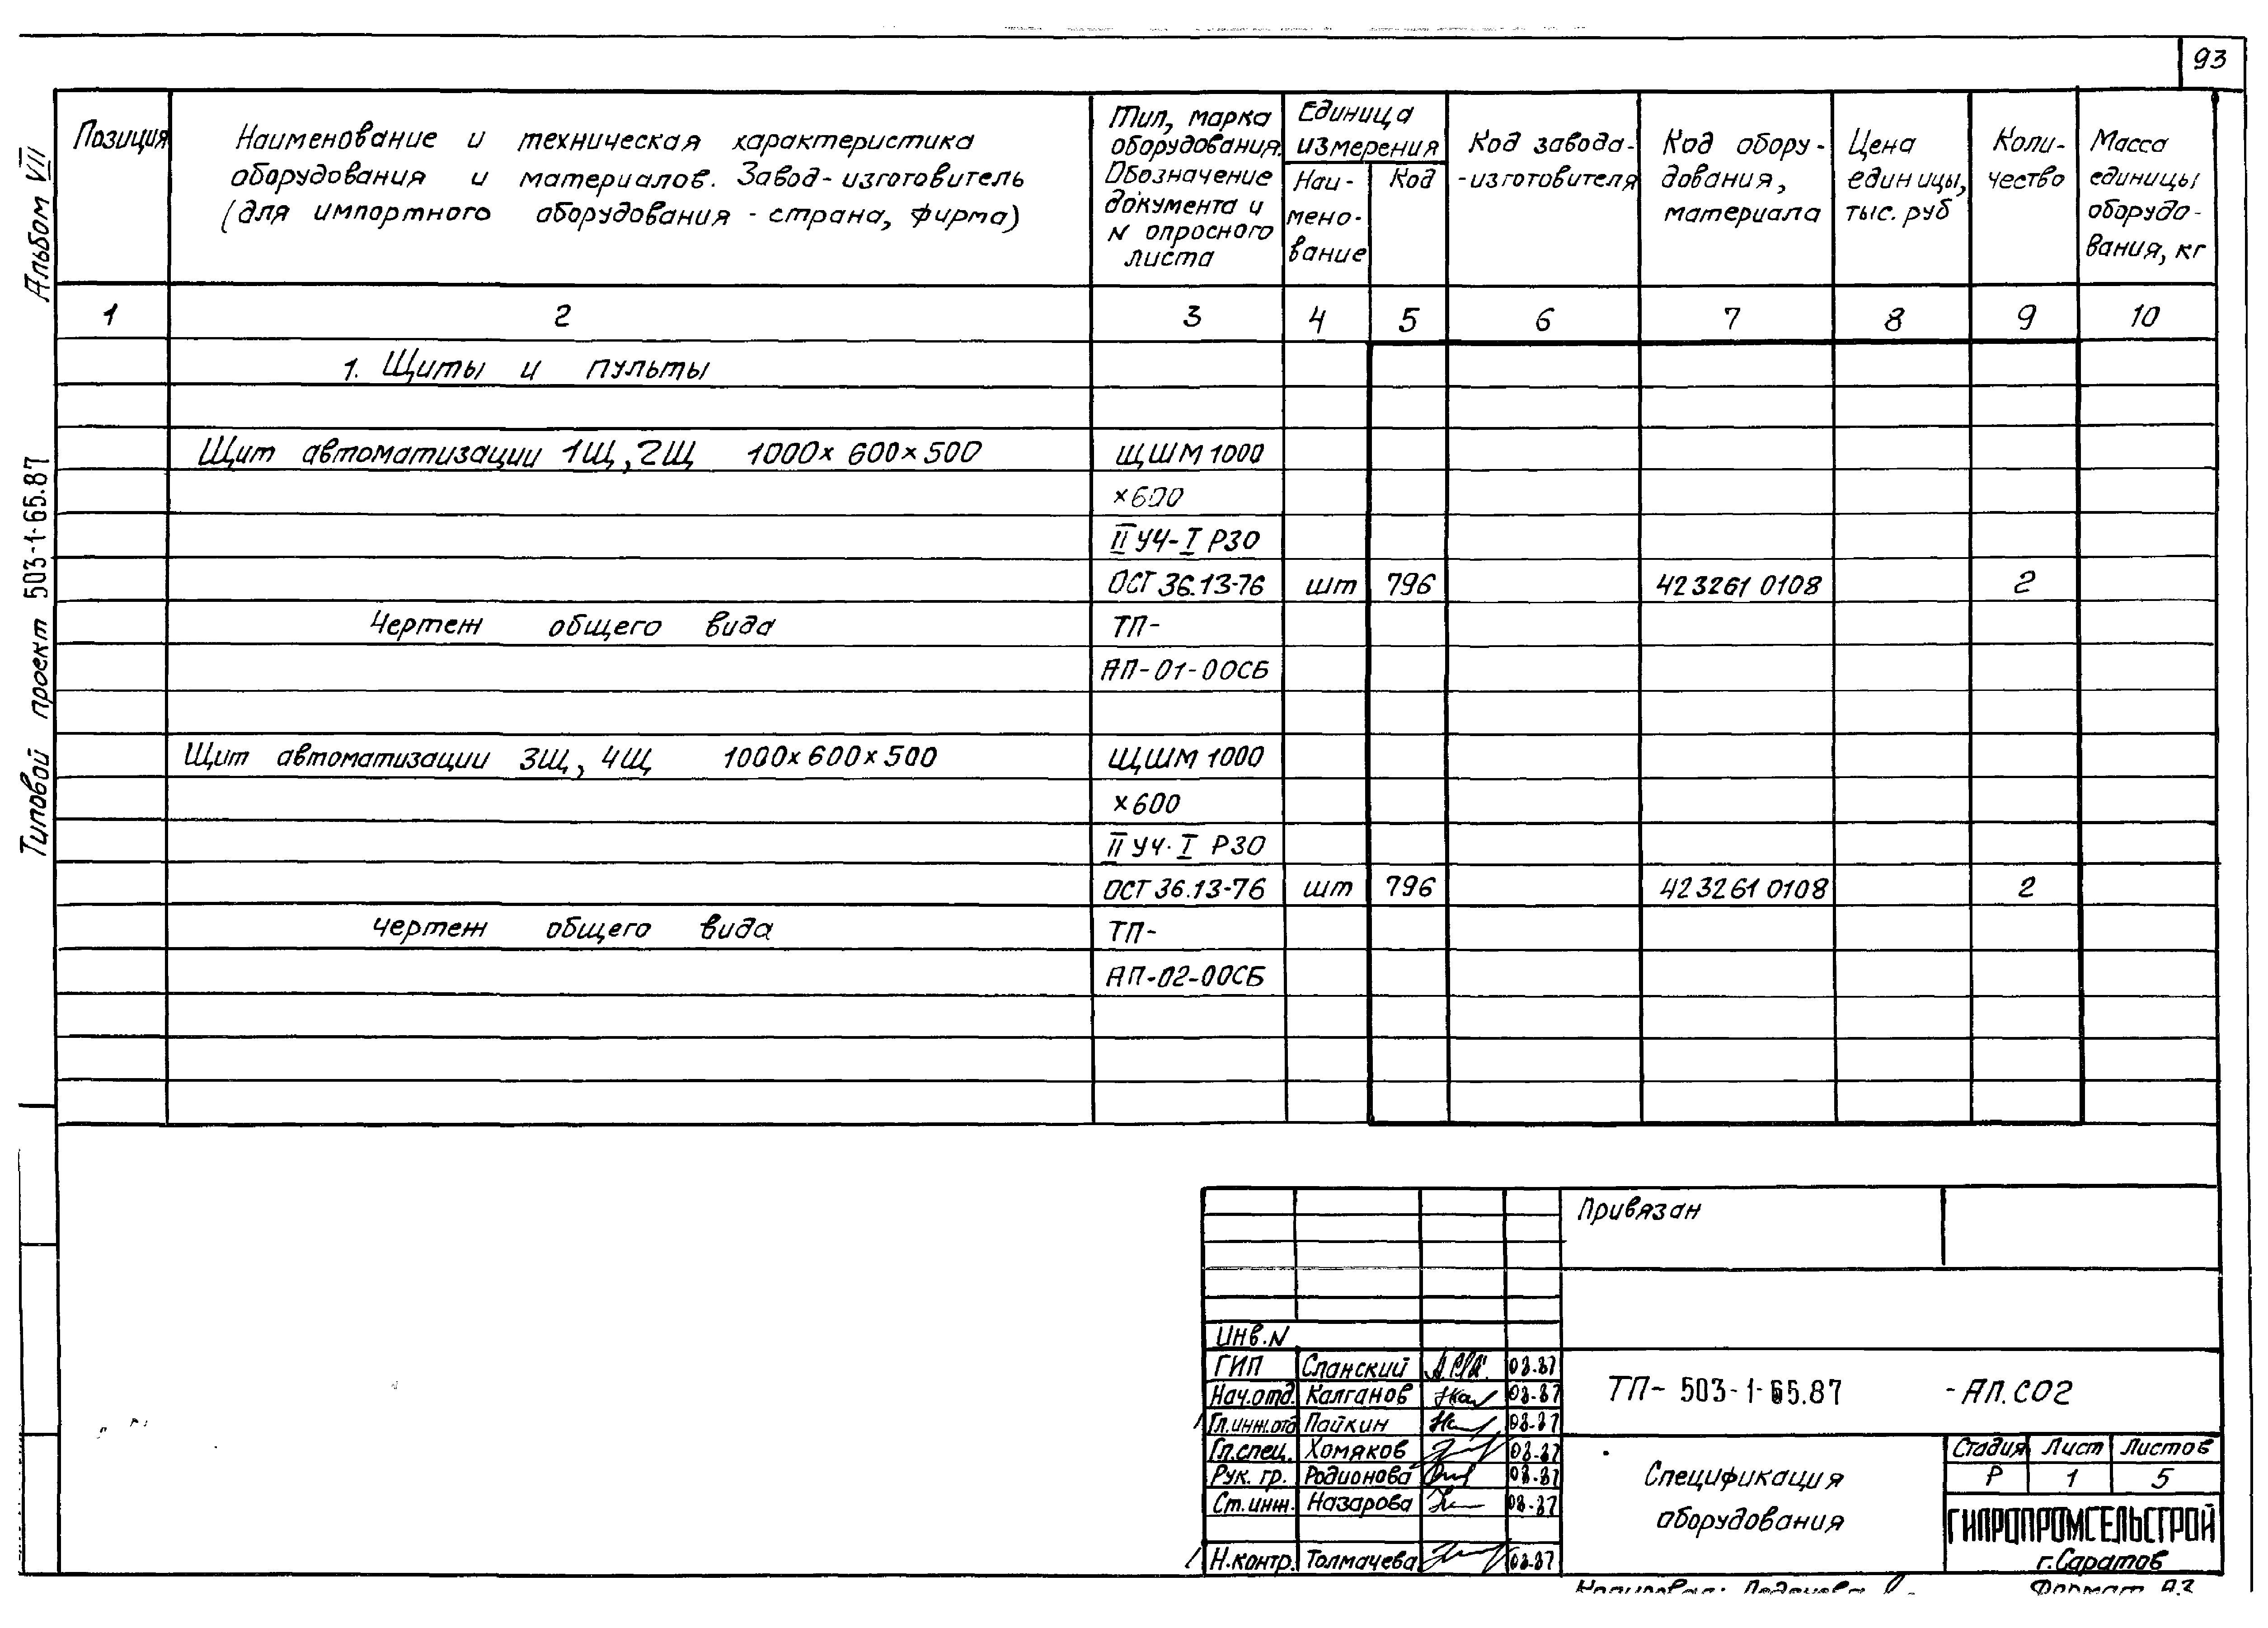 93
Альбом VII
Типовой проект 503-1-65.87
Позиция
Наименование и техническая характеристика
оборудования и материалов. Завод-изготовитель
(для импортного оборудования - страна, фирма)
Тип, марка
оборудования.
Обозначение
документа и
N опросного
листа
Единица
измерения
Наи-
мено-
вание
Код
Код завода-
-изготовителя
Код обору-
дования,
материала
Цена
единицы,
тыс. руб
Коли-
чество
Масса
единицы
оборудо-
вания, кг
1 2 3 4 5 6 7 8 9 10
1. Щиты и пульты
Щит автоматизации 1Щ, 2Щ 1000х 600х500 ЩШМ 1000
х600
II УЧ-I Р30
ОСТ 36.13-76 шт 796 423261 0108 2
Чертеж общего вида ТП-
АП-01-00СБ
Щит автоматизации 3Щ, 4Щ 1000х600х500 ЩШМ 1000
х600
II УЧ-I Р30
ОСТ 36.13-76 шт 796 423261 0108 2
чертеж общего вида ТП-
АП-02-00СБ
Привязан
Инв.N
ГИП Спанский 03.87
Нач.отд. Калганов 03-87
Гл.инж.отд Пайкин 03-87
Гл.спец. Хомяков 03-87
Рук. гр. Родионова 03-87
Ст.инж. Назарова 03-87
Н.контр. Толмачева 03-87
ТП- 503-1-65.87 -АП.СО2
Спецификация
оборудования
Стадия Лист Листов
Р 1 5
ГИПРОПРОМСЕЛЬСТРОЙ
г.Саратов
Копировал: Формат А3